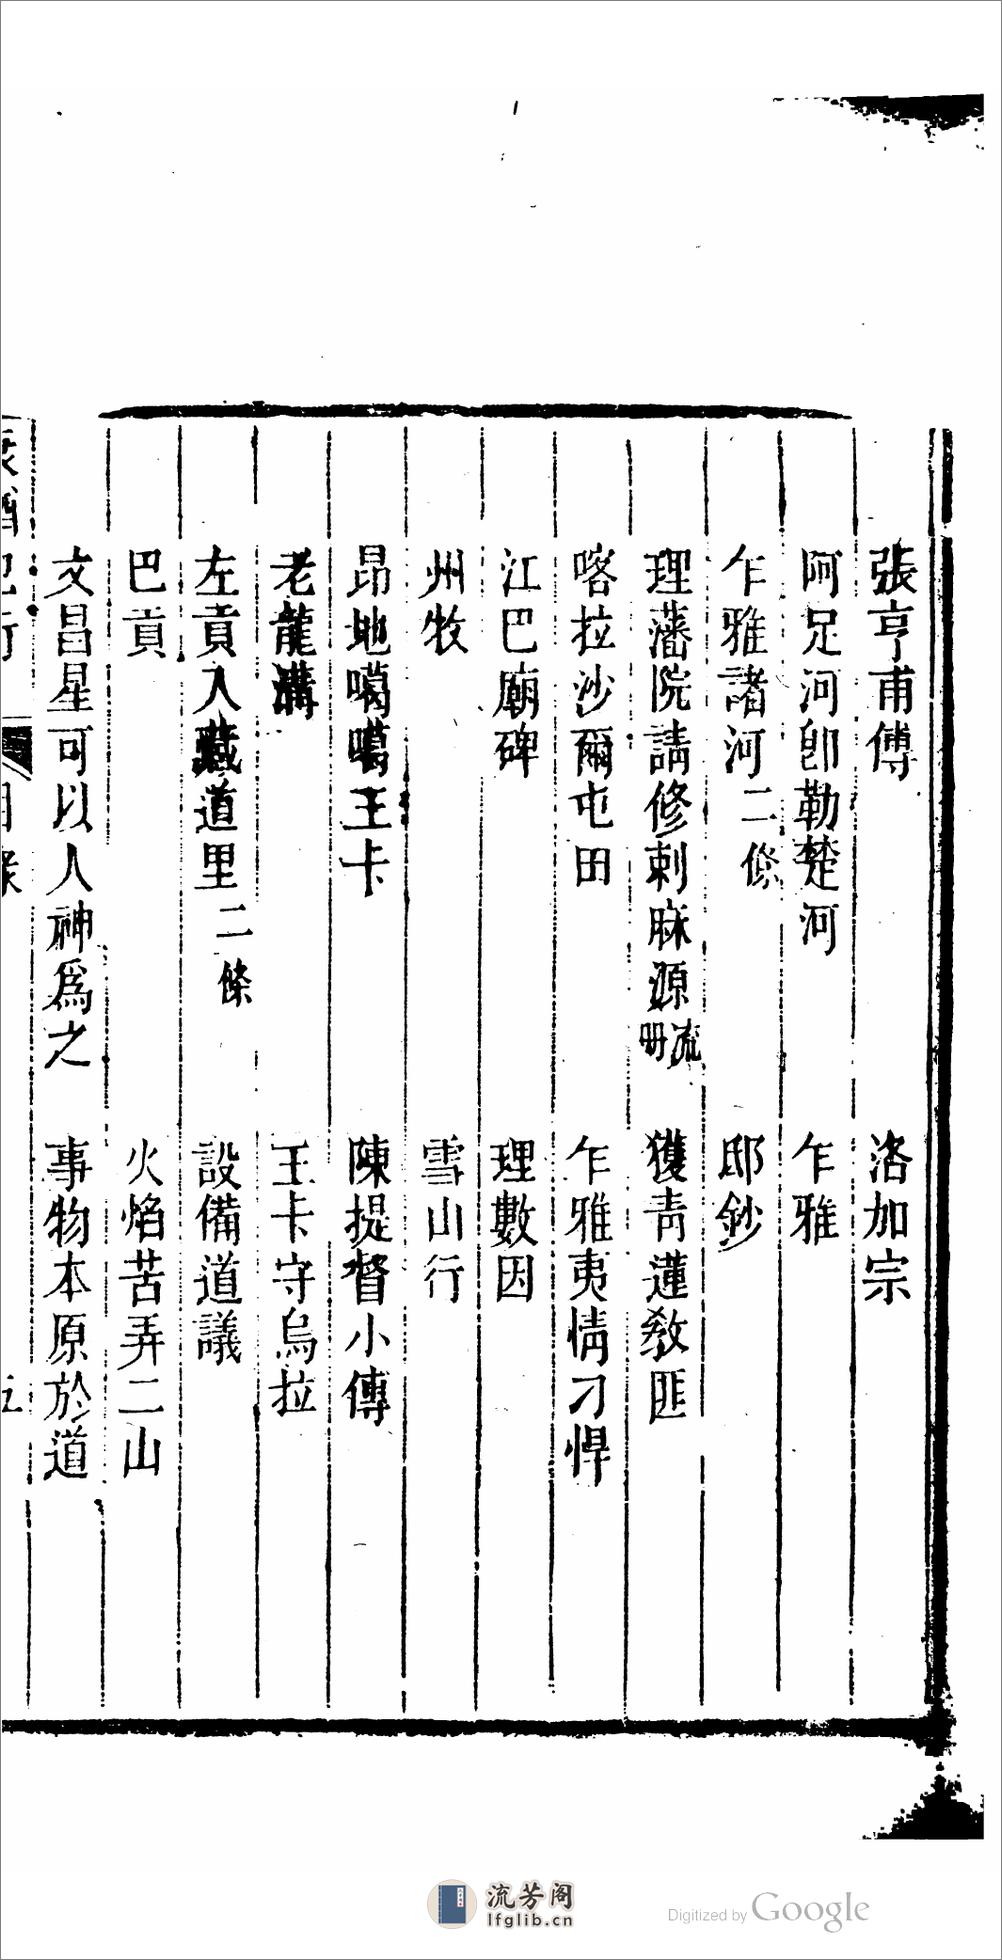 張亨甫傳　洛加宗
阿足河卽勒楚河　乍雅
乍雅諸河二條　邸鈔
理藩院請修剌麻源流册　獲青蓮教匪
喀拉沙爾屯田　乍雅夷情刁悍
江巴廟碑　理數因
州牧　雪山行
昂地噶噶王卡　陳提督小傳
老龍溝　王卡守烏拉
左貢入藏道里二條　設備道議
巴貢　火焰苦弄二山
文昌星可以人神爲之　事物本原於道
流芳阁
lfglib.cn
Digitized by Google